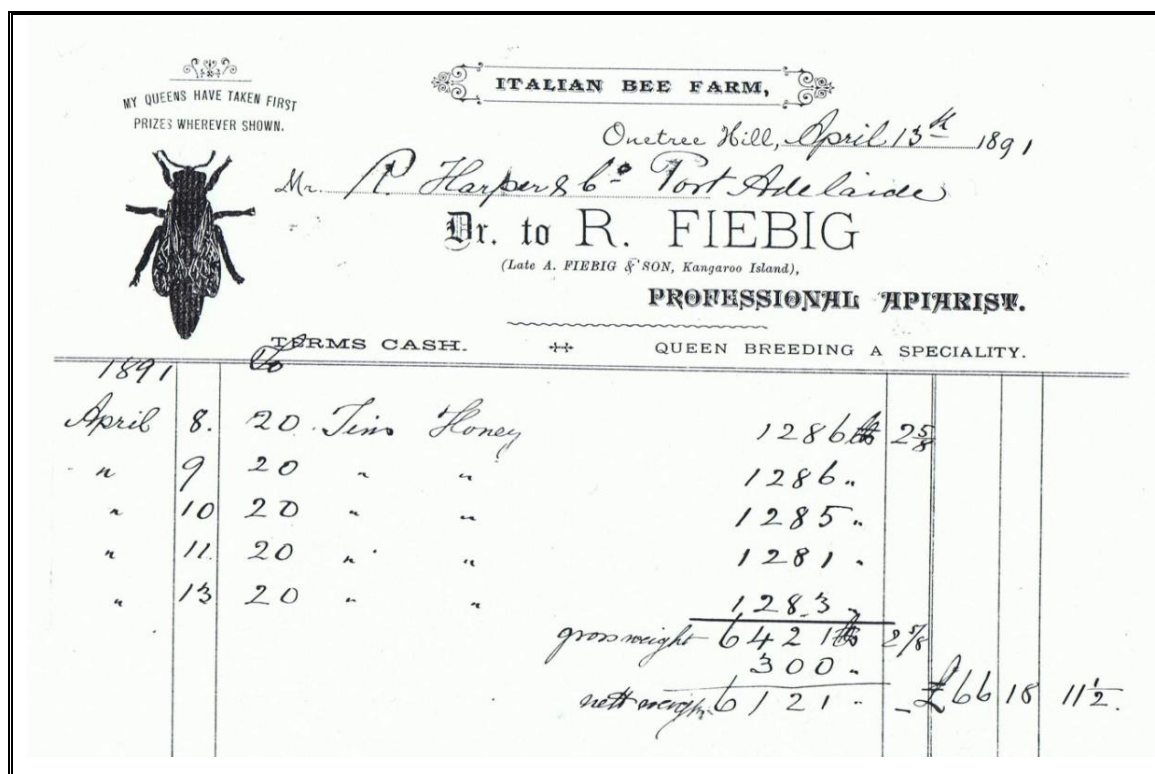 MY QUEENS HAVE TAKEN FIRST
PRIZES WHEREVER SHOWN.
ITALIAN BEE FARM,
Onetree Hill, April 13th 1891
Mr. R. Harper & Co Port Adelaide
Dr. to R. FIEBIG
(Late A. FIEBIG & SON, Kangaroo Island),
PROFESSIONAL APIARIST.
TERMS CASH. QUEEN BREEDING A SPECIALITY.
1891 To
April 8. 20 Tins Honey 1286 lbs 2 5/8
" 9 20 " " 1286 "
" 10 20 " " 1285 "
" 11. 20 " " 1281 "
" 13 20 " " 1283 "
gross weight 6421 lbs 2 5/8
300 "
nett weight 6121 " - £66 18 11 1/2.